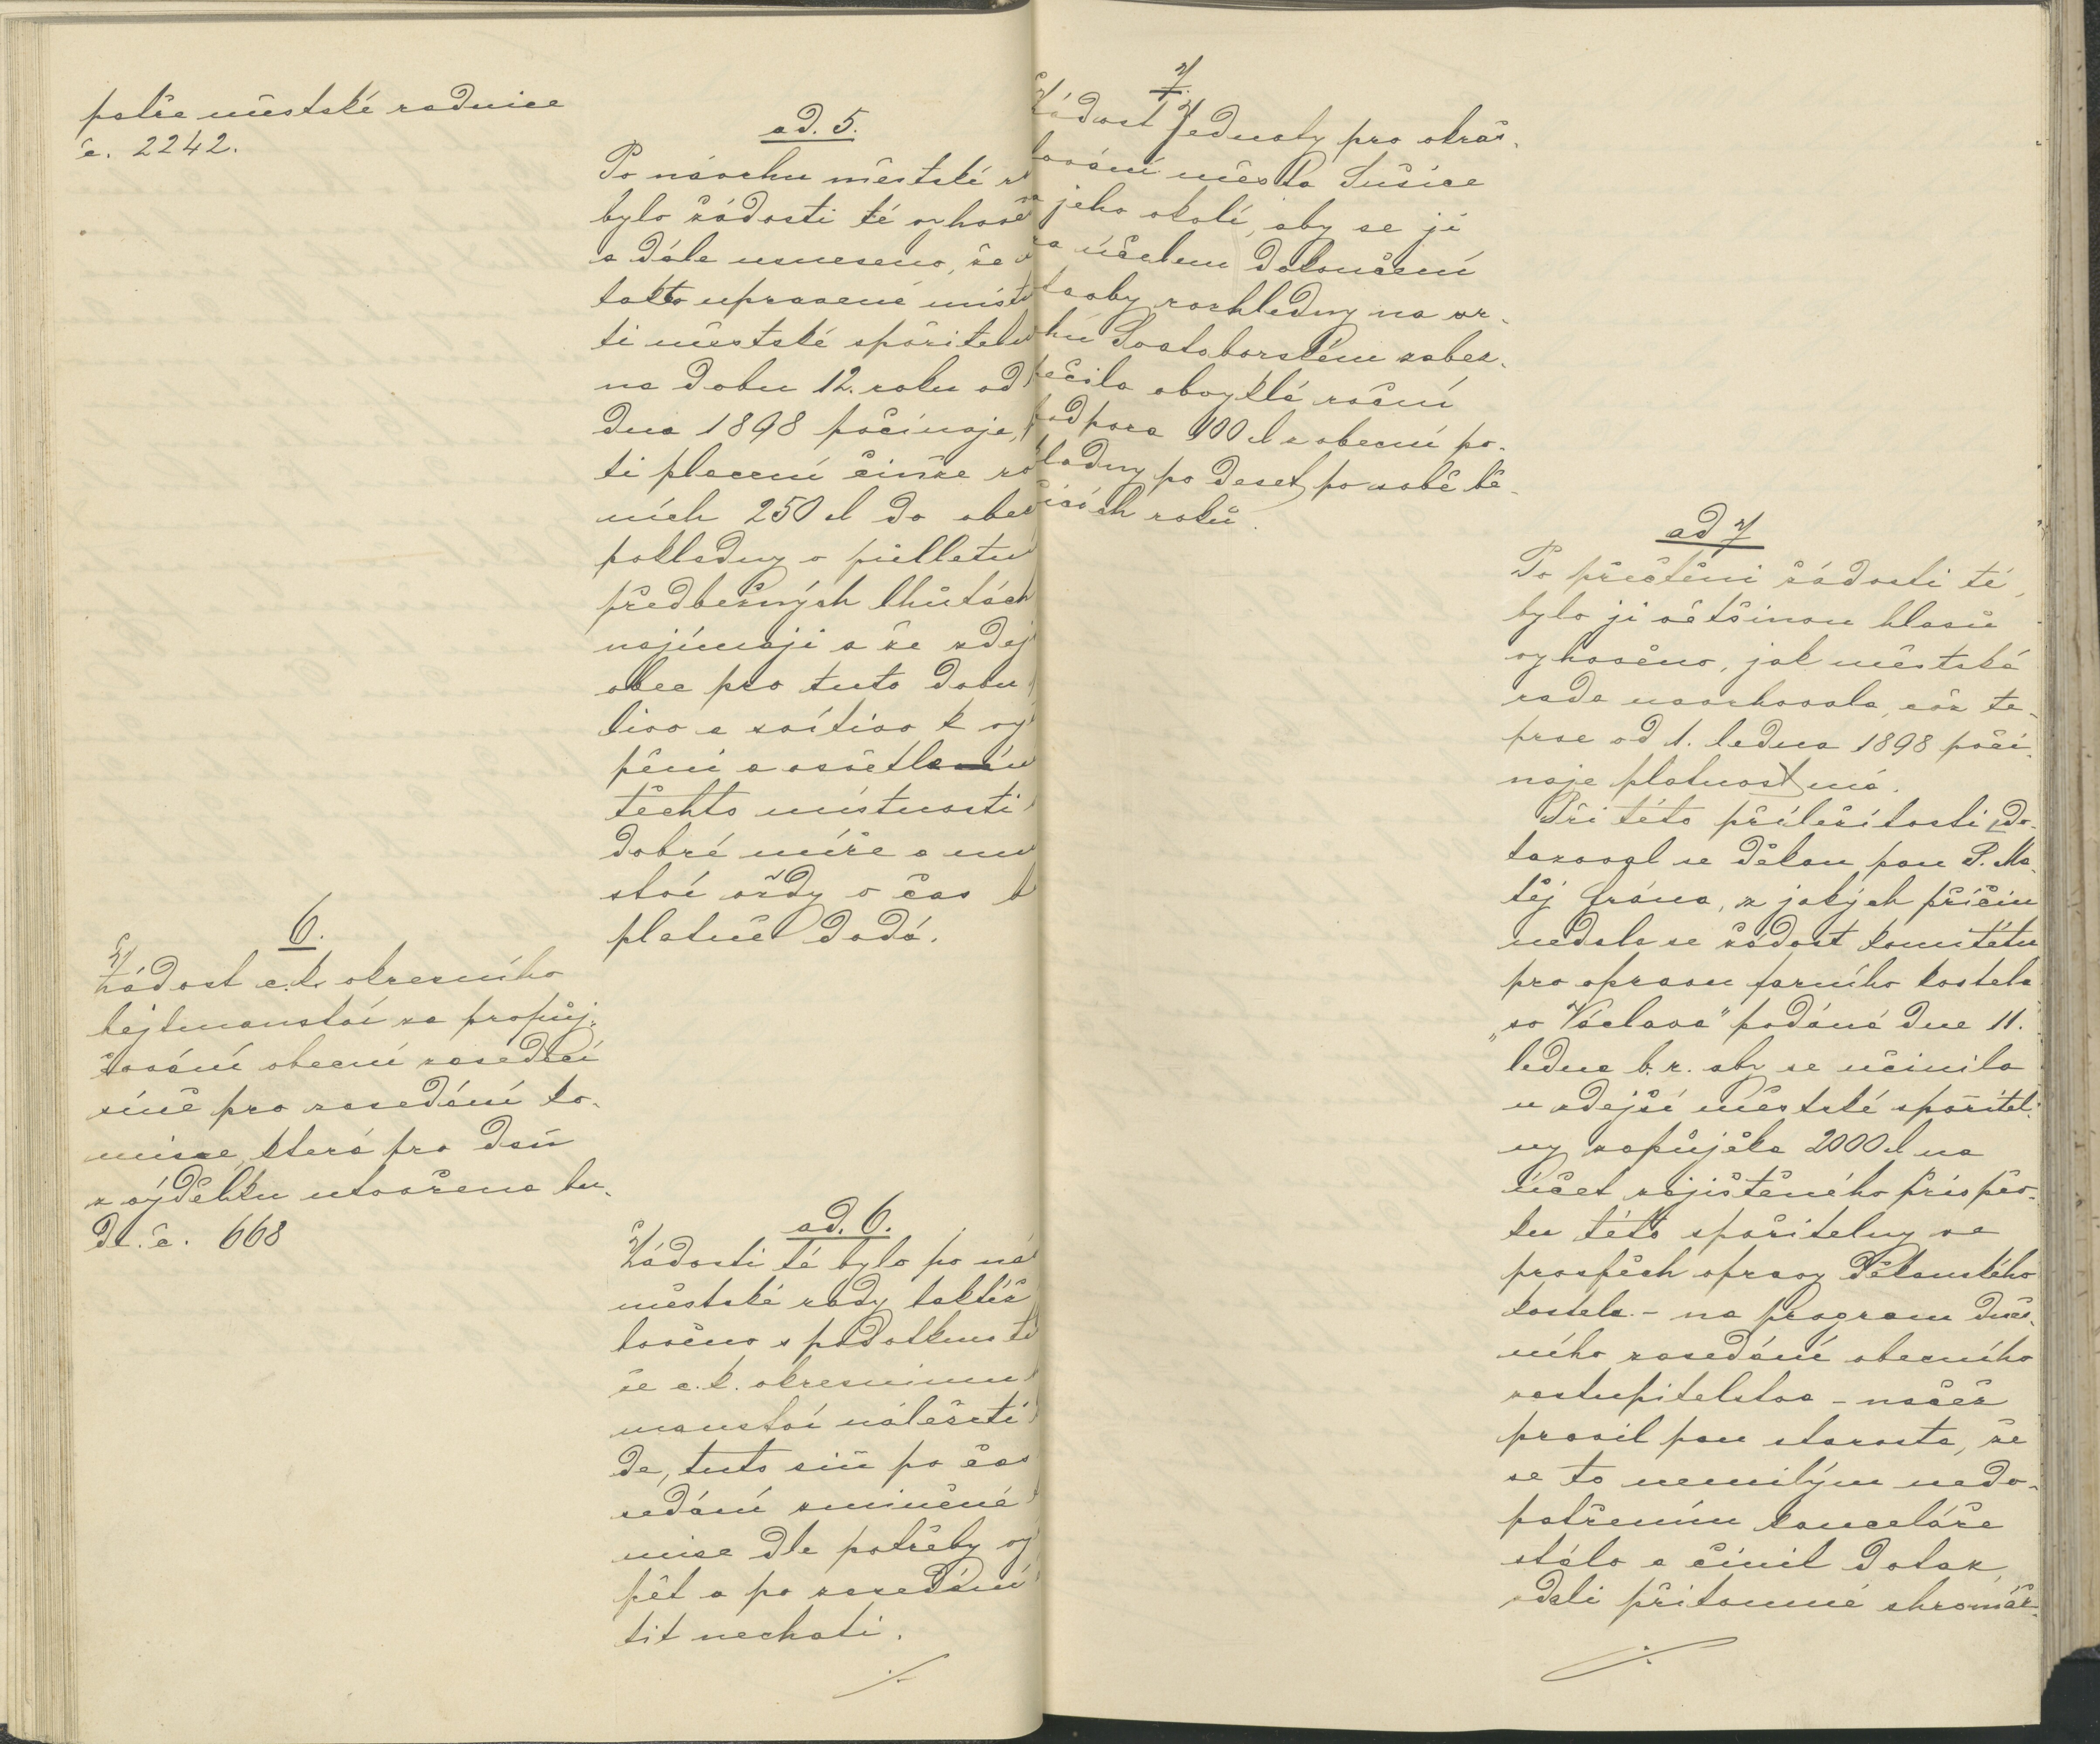 patře městské radnice
č. 2242.
ad. 5.
Po návrhu městské r
bylo žádosti té vyhově
a dále usneseno, že
takto upravené místn
ti městské spořiteln
na dobu 12. roku od
dna 1898 počínaje,
ti placení činže ro
ních 250 zl do obec
pokladny v půlletn
předběžných lhůtách
najímají a že zdej
obec pro tuto dobu
livo a svítivo k vy
pění a osvětlení
těchto místností
dobré míře a mn
ství vždy v čas b
platně dodá.
6.
Žádost c.k. okresního
hejtmanství za propůj-
čování obecní zasedací
síně pro zasedání ko-
mise, která pro daň
z výdělku utvořena bu-
de. č. 668
ad. 6.
Žádosti té bylo po ná
městské rady taktéž
hověno s podotknutí
že c.k. okresnímu
manství náležeti
de, tuto síň po čas
sedání zmíněné
mise dle potřeby vy
pět a po zasedání
tit nechati.
./.
7.
Žádost Jednoty pro okráš-
lování města Sušice
a jeho okolí, aby se jí
za účelem dokončení
stavby rozhledny na vr-
chu Svatoborském zabez-
pečila obvyklá roční
podpora 100 zl z obecní po-
kladny po deset po sobě bě-
žících roků.
ad 7
Po přečtění žádosti té,
bylo jí většinou hlasů
vyhověno, jak městská
rada navrhovala, což te-
prve od 1. ledna 1898 počí-
naje platnost má.
Při této příležitosti do-
tazoval se děkan pan P. Ma-
těj Hrána, z jakých příčin
nedala se žádost komitétu
pro opravu farního kostela
„sv Václava" podáná dne 11.
ledna b. r. aby se učinila
u zdejší městské spořitel-
ny zápůjčka 2000 zl na
účet zajištěného příspěv-
ku této spořitelny ve
prospěch opravy děkanského
kostela - na program dneš-
ního zasedání obecního
zastupitelstva - načež
pravil pan starosta, že
se to nemilým nedo-
patřením kanceláře
stálo a činil dotaz,
zdali přítomné shromáž-
./.